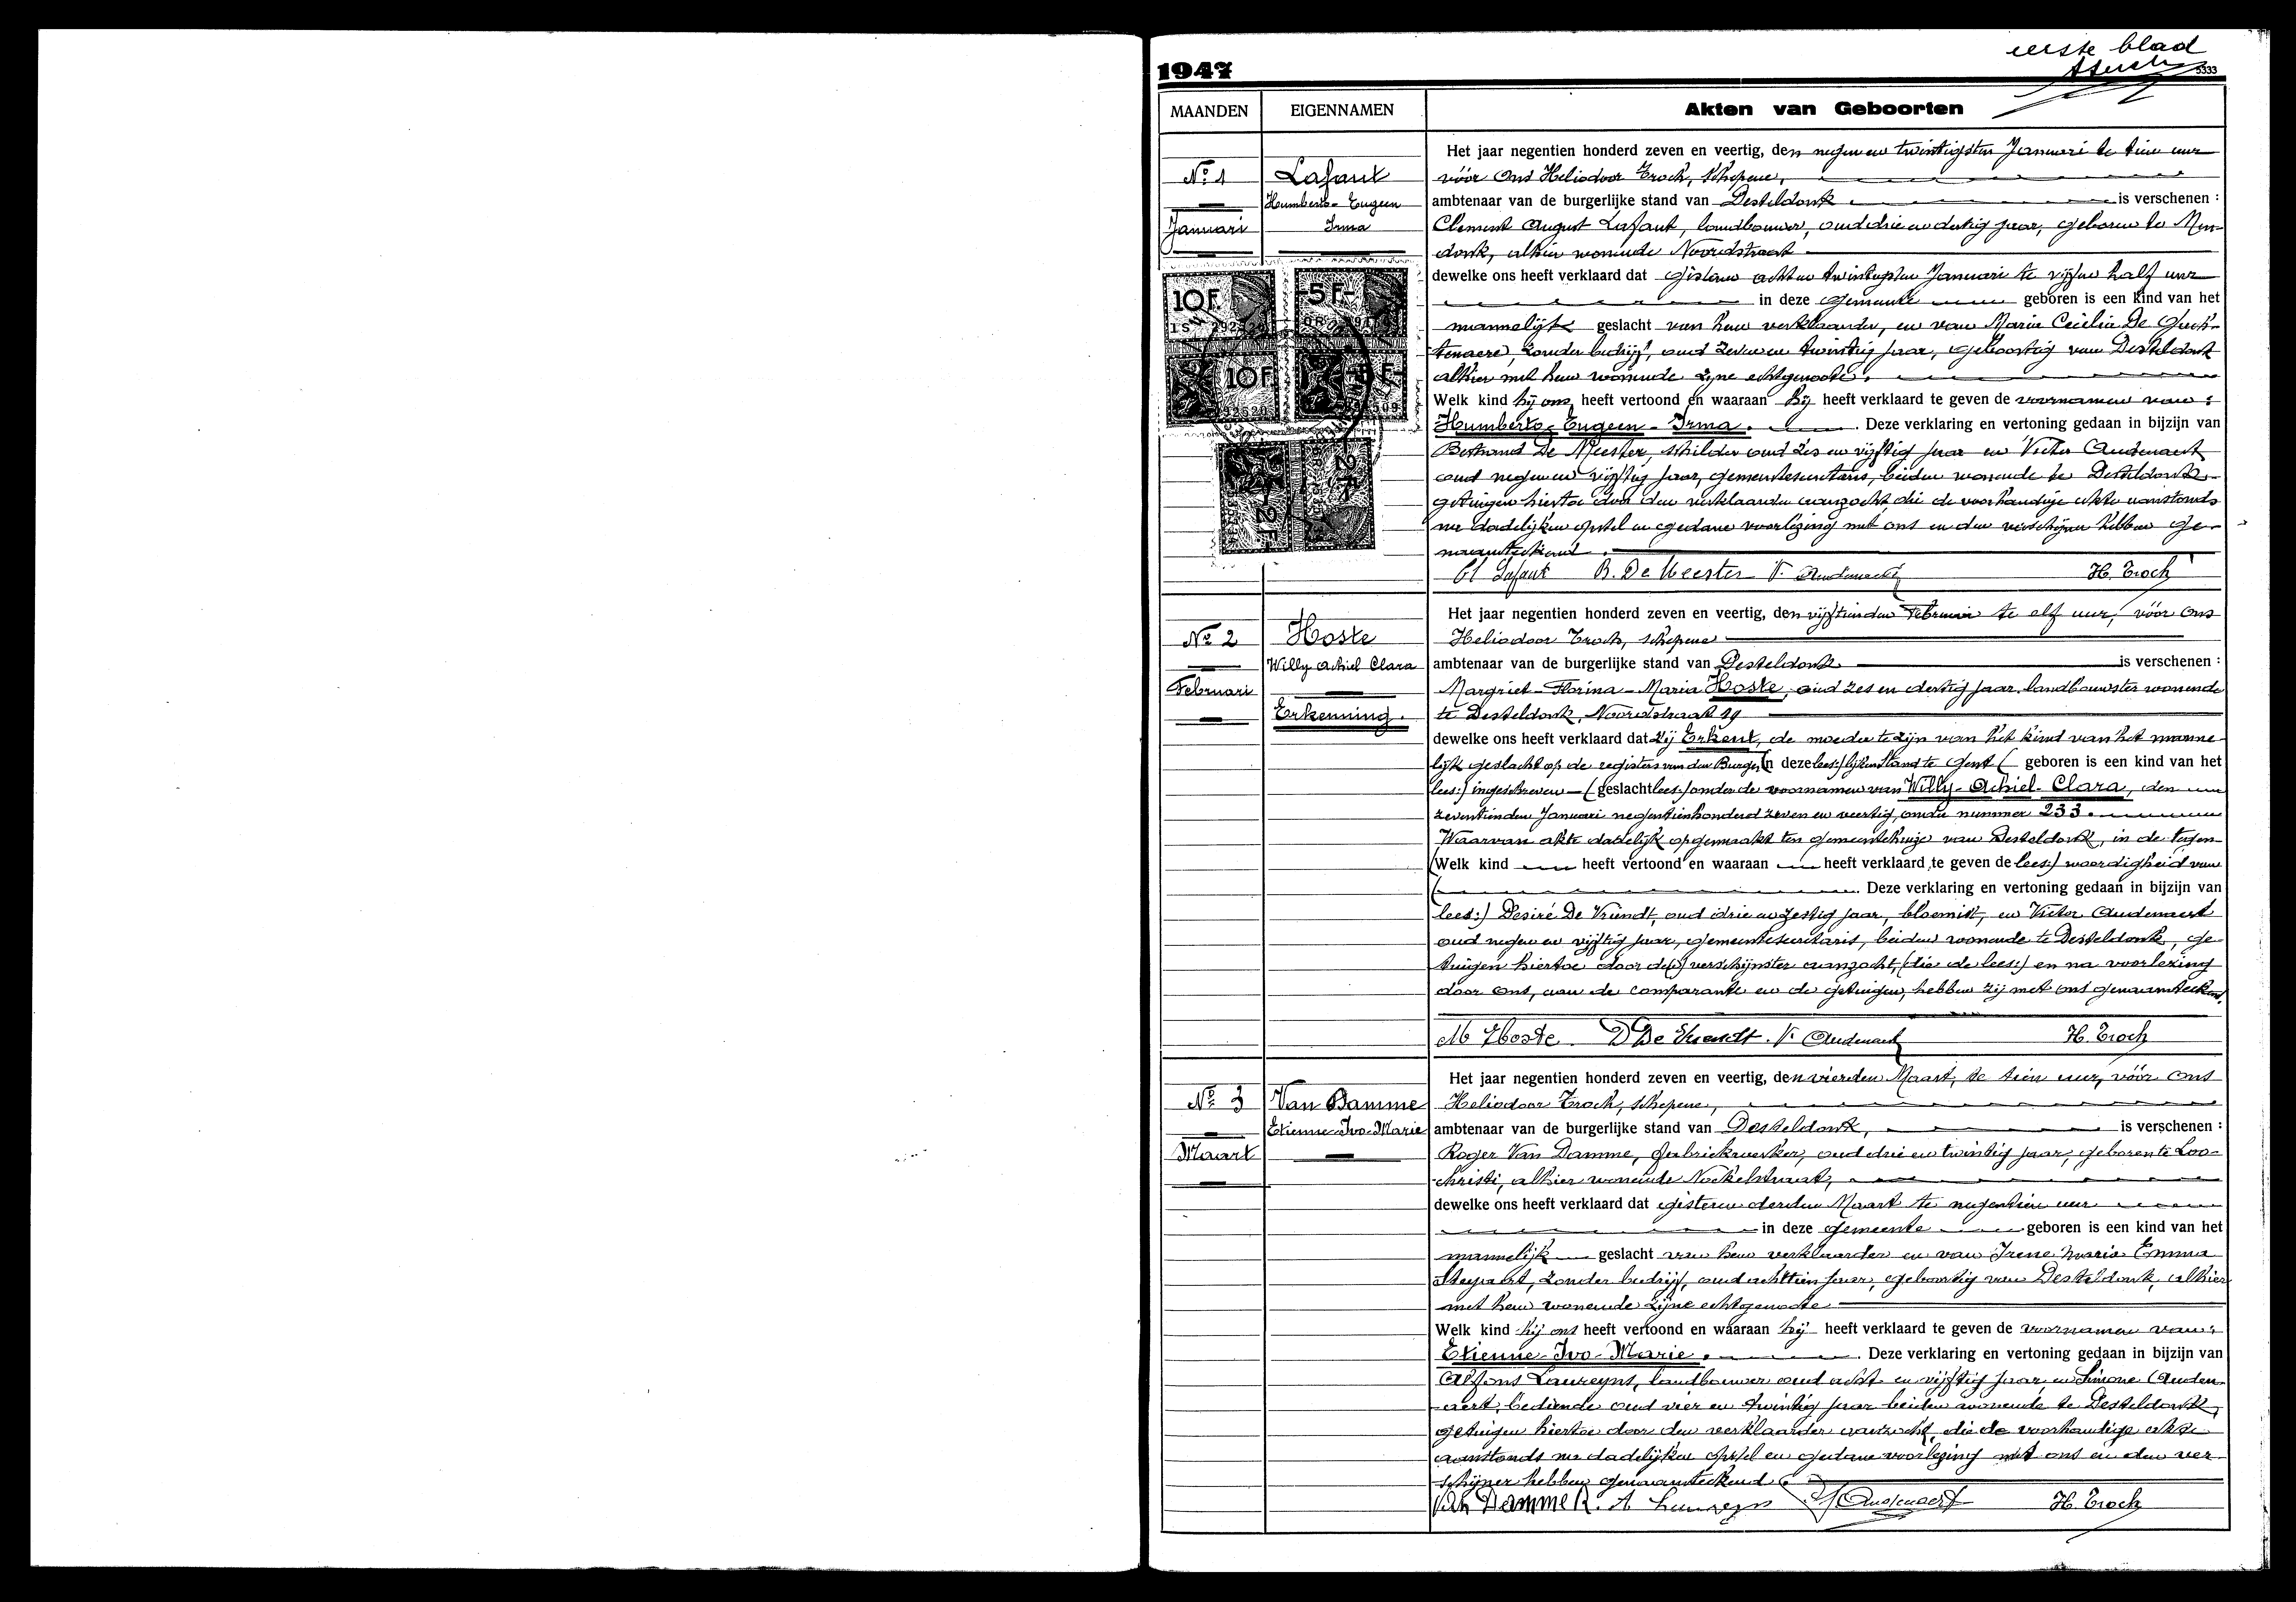 eerste blad
1947
5333
MAANDEN EIGENNAMEN Akten van Geboorten
No 1
Januari
Lafaut
Humberto-Eugeen
Irma
Het jaar negentien honderd zeven en veertig, den negen en twintigsten Januari te tien uur
vóór Ons Heliodoor Troch, schepene,
ambtenaar van de burgerlijke stand van Desteldonk is verschenen :
Clement August Lafaut, landbouwer, oud drie en dertig jaar, geboren te Men-
donk, alhier wonende Noordstraat
dewelke ons heeft verklaard dat gisteren acht en twintigsten Januari te vijfen half uur
in deze gemeente geboren is een kind van het
mannelijk geslacht van hem verklaarder, en van Maria Cecilia De Guch-
tenaere, zonder bedrijf, oud zeven en twintig jaar, geboortig van Desteldonk
alhier met hem wonende zijne echtgenoote.
Welk kind hij ons heeft vertoond en waaraan hij heeft verklaard te geven de voornamen van :
Humberto-Eugeen-Irma. Deze verklaring en vertoning gedaan in bijzijn van
Bertrand De Meester, schilder oud zes en vijftig jaar en Victor Audenaert
oud negen en vijftig jaar, gemeentesecretaris, beiden wonende te Desteldonk
getuigen hiertoe door den verklaarder aanzocht, die de voorhandige akte aanstonds
na dadelijken opstel en gedane voorlezing met ons en den verschijner hebben ge-
naamteekend.
Cl Lafaut B. De Meester V. Audenaert H. Troch
10F
5F
10F
2F
2F
No 2
Februari
Hoste
Willy Achiel Clara
Erkenning.
Het jaar negentien honderd zeven en veertig, den vijftienden Februari te elf uur, vóór Ons
Heliodoor Troch, schepene
ambtenaar van de burgerlijke stand van Desteldonk is verschenen :
Margriet-Florina-Maria Hoste, oud zes en dertig jaar, landbouwster wonende
te Desteldonk, Noordstraat 19
dewelke ons heeft verklaard dat zij Erkent, de moeder te zijn van het kind van het manne-
lijk geslacht op de registers van den Burger (in deze lees:) lijken Stand te Gent ( geboren is een kind van het
lees:) ingeschreven ( geslacht lees:) onder de voornamen van Willy-Achiel-Clara, den
zeventienden Januari negentienhonderd zeven en veertig, onder nummer 233.
Waarvan akte dadelijk opgemaakt ten gemeentehuize van Desteldonk, in de tegen-
(Welk kind heeft vertoond en waaraan heeft verklaard te geven de lees:) woordigheid van
( Deze verklaring en vertoning gedaan in bijzijn van
lees:) Desiré De Vriendt, oud drie en zestig jaar, bloemist, en Victor Audenaert
oud negen en vijftig jaar, gemeentesecretaris, beiden wonende te Desteldonk, ge-
tuigen hiertoe door de verschijnster aanzocht, (die de lees:) en na voorlezing
door Ons, aan de comparante en de getuigen, hebben zij met ons genaamteekend.
M Hoste D De Vriendt V. Audenaert H. Troch
No 3
Maart
Van Damme
Etienne-Ivo-Marie
Het jaar negentien honderd zeven en veertig, den vierden Maart, te tien uur, vóór Ons
Heliodoor Troch, schepene,
ambtenaar van de burgerlijke stand van Desteldonk, is verschenen :
Roger Van Damme, fabriekwerker, oud drie en twintig jaar, geboren te Loo-
christi, alhier wonende Nokelstraat,
dewelke ons heeft verklaard dat gisteren derden Maart te negentien uur
in deze gemeente geboren is een kind van het
mannelijk geslacht van hem verklaarder en van Irene Maria Emma
Steyaert, zonder bedrijf, oud achttien jaar, geboortig van Desteldonk, alhier
met hem wonende zijne echtgenoote
Welk kind hij ons heeft vertoond en waaraan hij heeft verklaard te geven de voornamen van :
Etienne-Ivo-Marie. Deze verklaring en vertoning gedaan in bijzijn van
Alfons Laureyns, landbouwer oud acht en vijftig jaar en Simone Auden-
aert, bediende oud vier en twintig jaar beiden wonende te Desteldonk,
getuigen hiertoe door den verklaarder aanzocht, die de voorhandige akte
aanstonds na dadelijken opstel en gedane voorlezing met ons en den ver-
schijner hebben genaamteekend.
Van Damme R. A Laureyns S Audenaert H. Troch